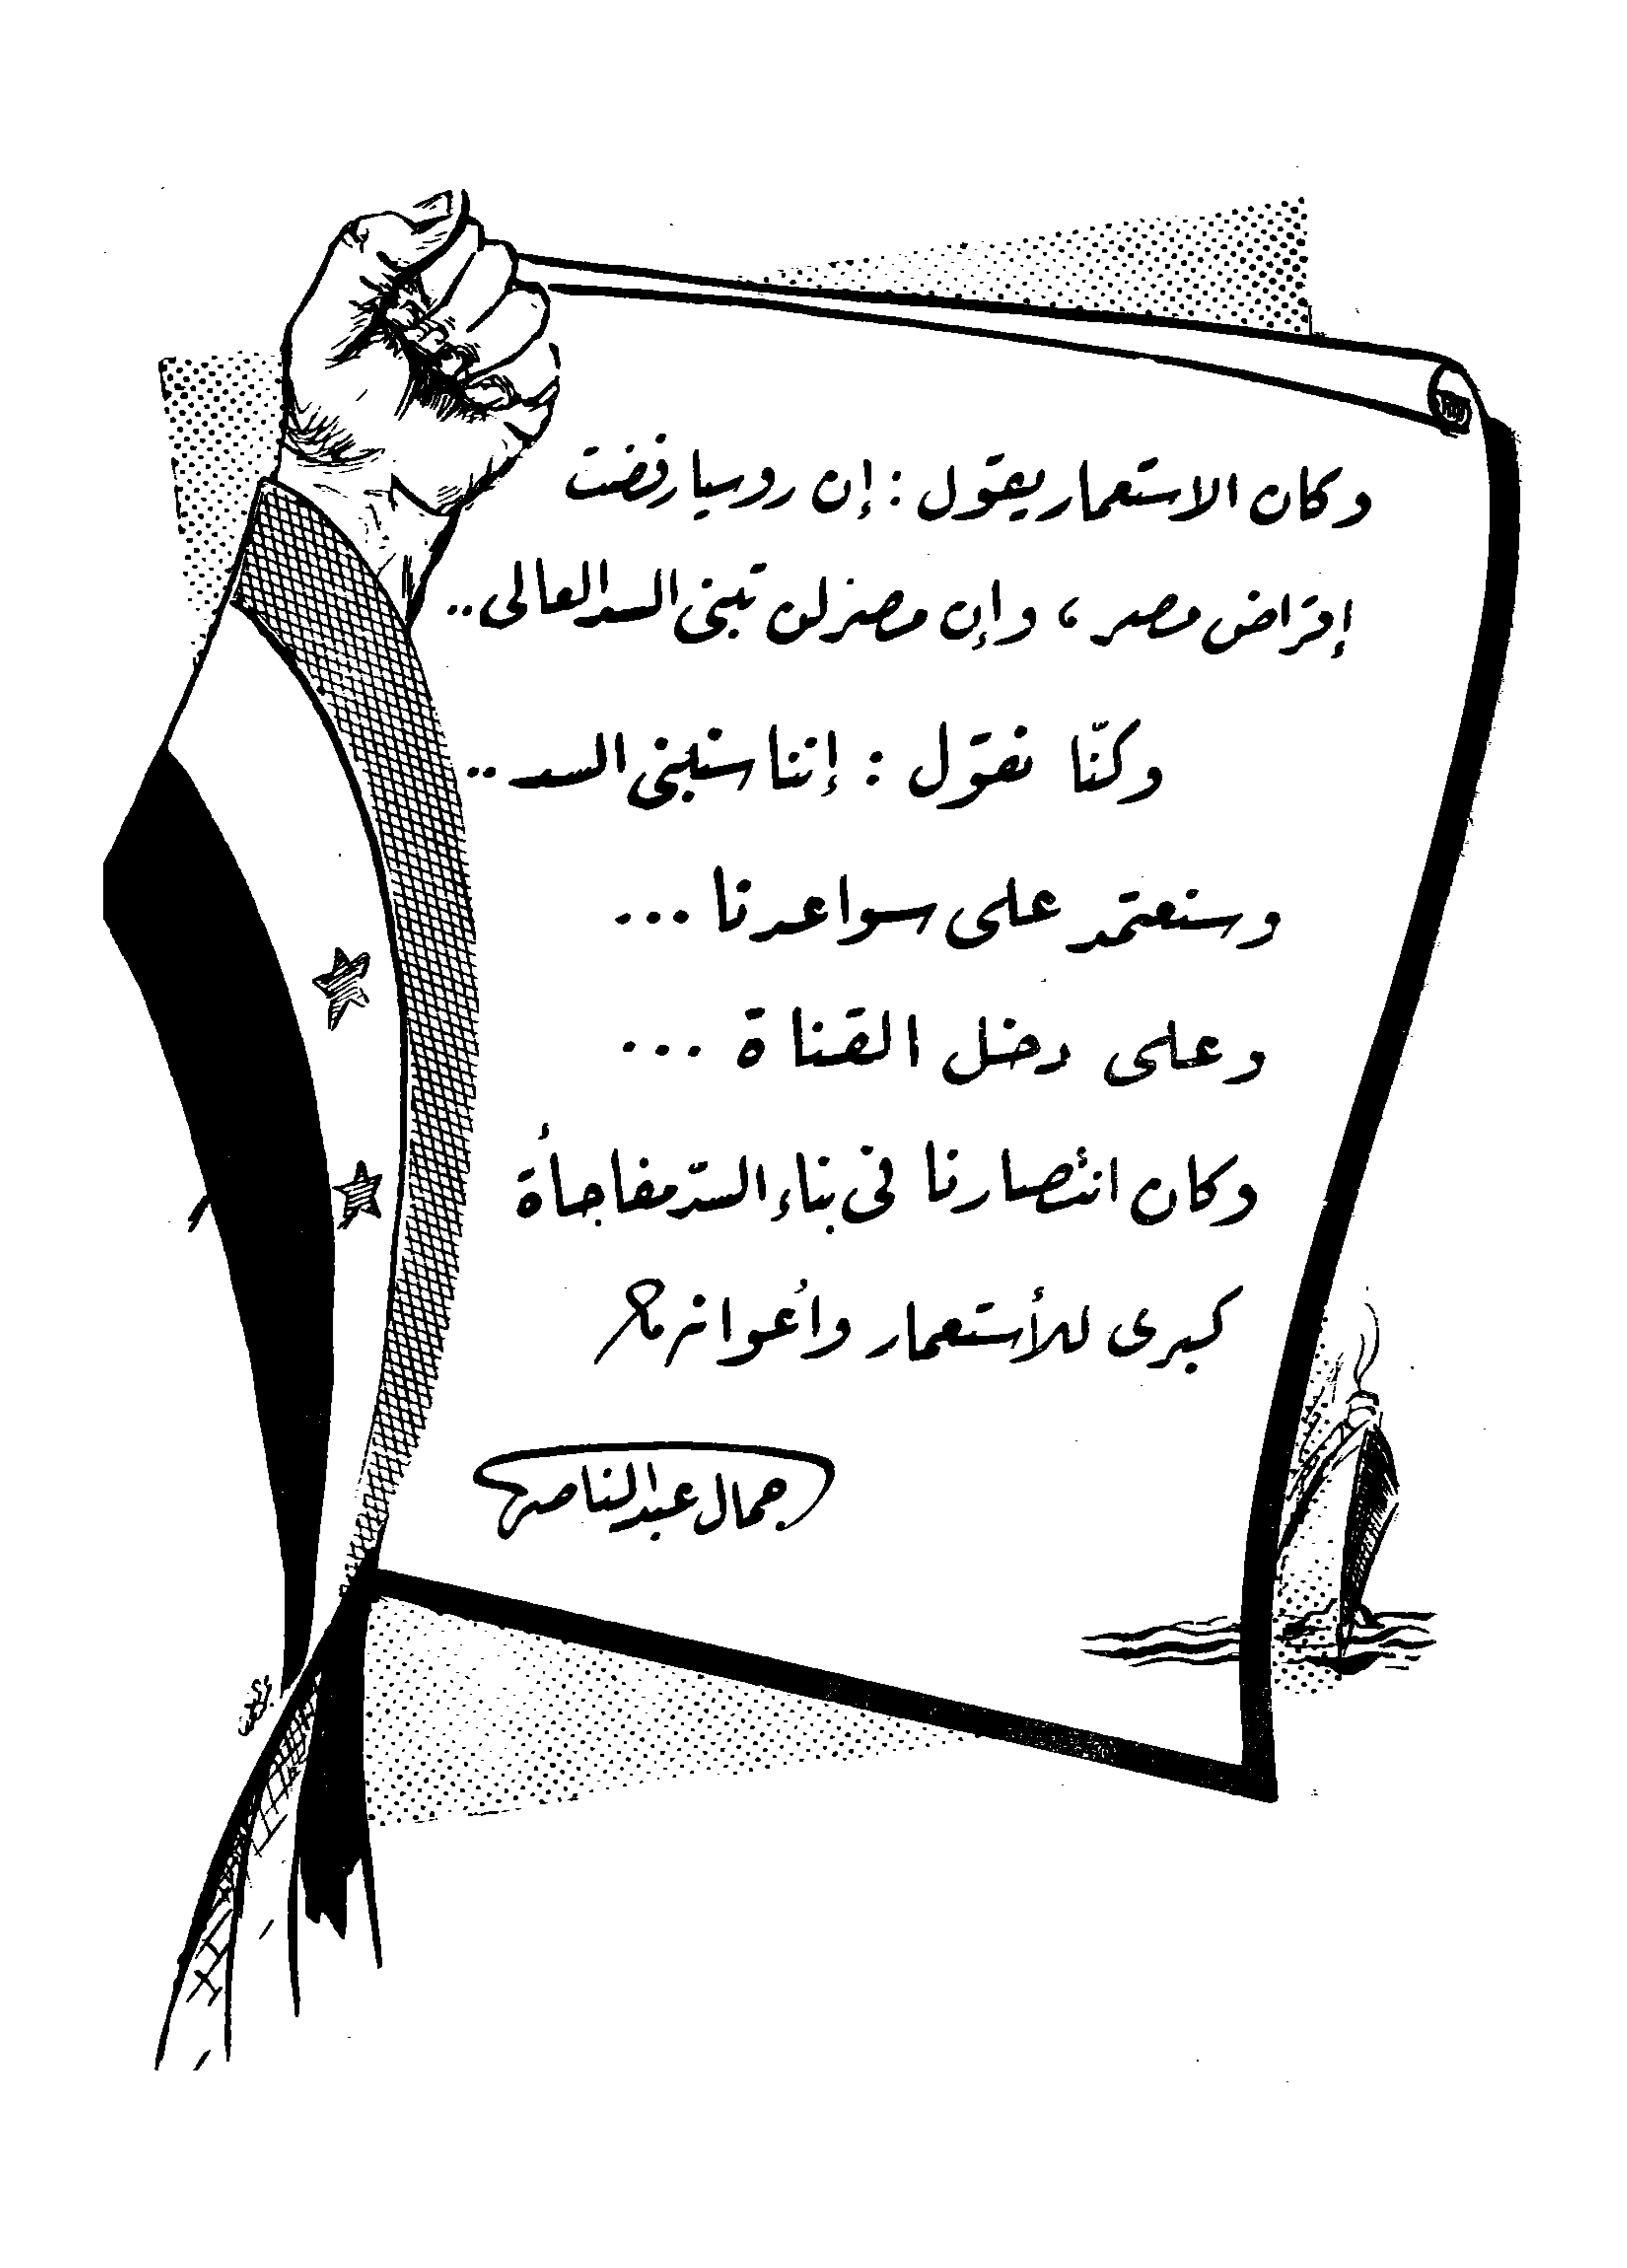 وكان الاستعمار يقول : إن روسيا رفضت
إقراض مصر ، وإن مصر لن تبنى السد العالى ..
وكنّا نقول : إننا سنبنى السد ..
وسنعتمد على سواعدنا ...
وعلى دخل القناة ...
وكان انتصارنا فى بناء السدّ مفاجأة
كبرى للأستعمار وأعوانه
جمال عبد الناصر